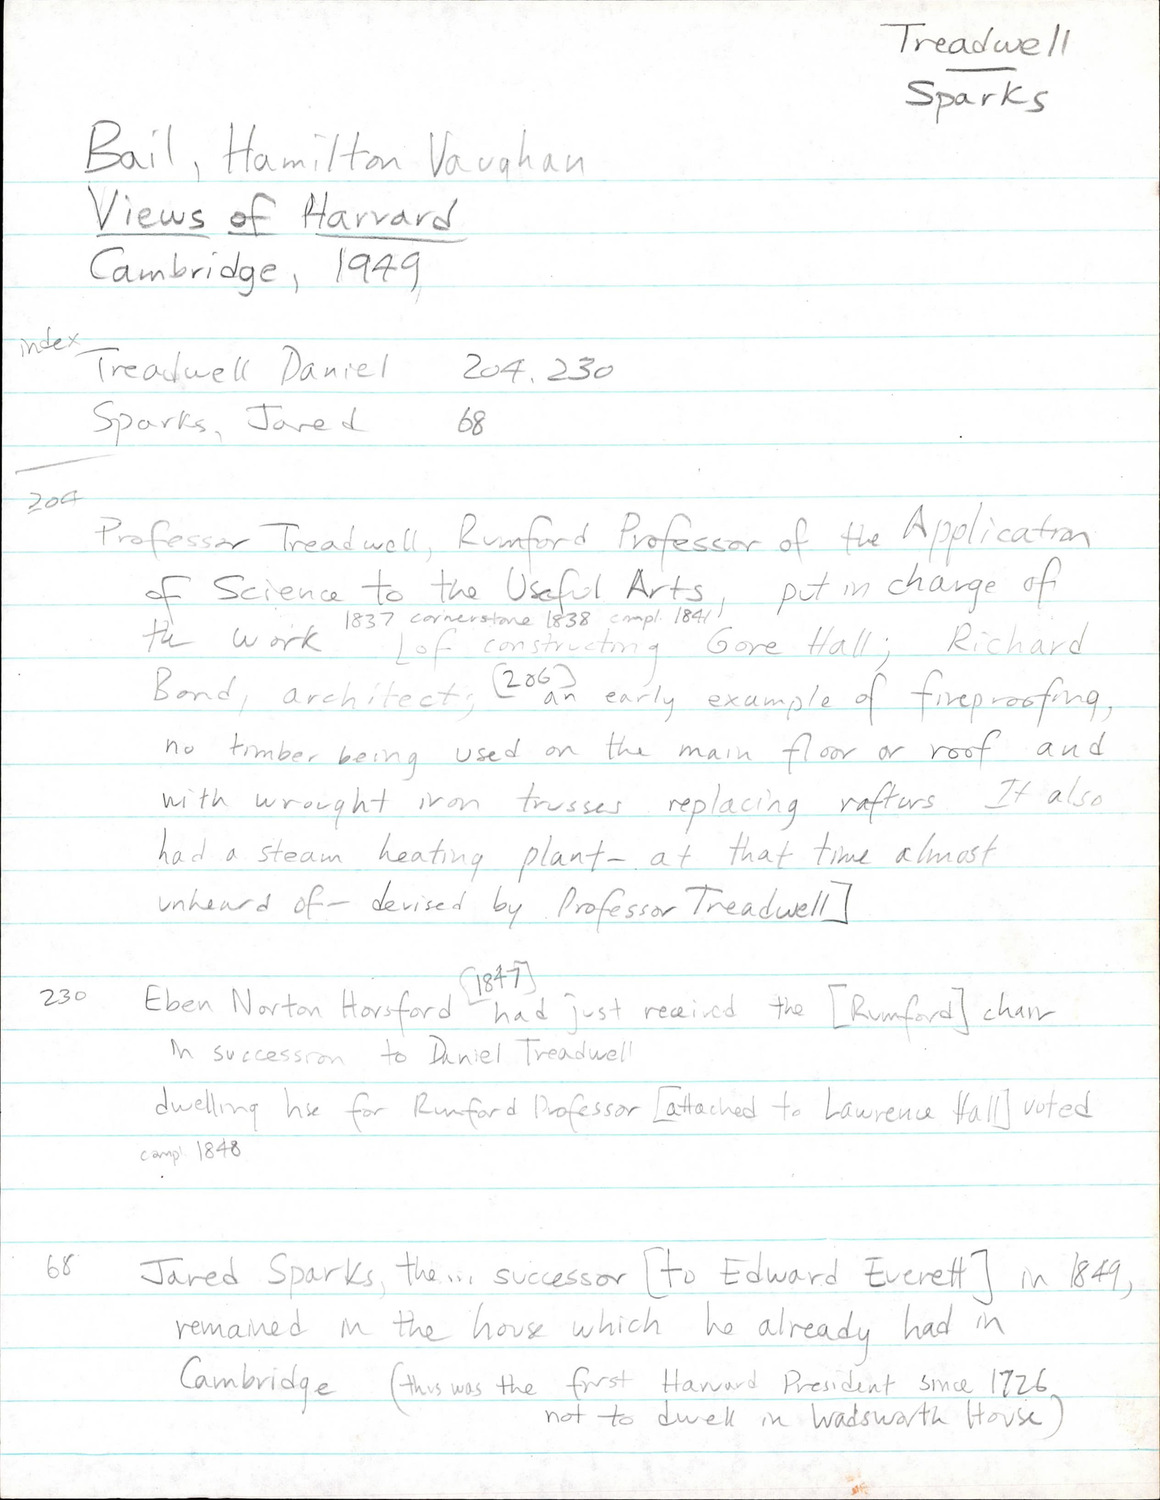 Treadwell
Sparks
Bail, Hamilton Vaughan
Views of Harvard
Cambridge, 1949
index
Treadwell Daniel 204, 230
Sparks, Jared 68
204
Professor Treadwell, Rumford Professor of the Application
of Science to the Useful Arts, put in charge of
1837 cornerstone 1838 compl. 1841
the work [of constructing Gore Hall; Richard
Bond, architect; (206) an early example of fireproofing,
no timber being used on the main floor or roof and
with wrought iron trusses replacing rafters It also
had a steam heating plant - at that time almost
unheard of - devised by Professor Treadwell]
[1847]
230 Eben Norton Horsford had just received the [Rumford] chair
in succession to Daniel Treadwell
dwelling hse for Rumford Professor [attached to Lawrence Hall] voted
compl. 1848
68 Jared Sparks, the... successor [to Edward Everett] in 1849,
remained in the house which he already had in
Cambridge (thus was the first Harvard President since 1726
not to dwell in Wadsworth House)